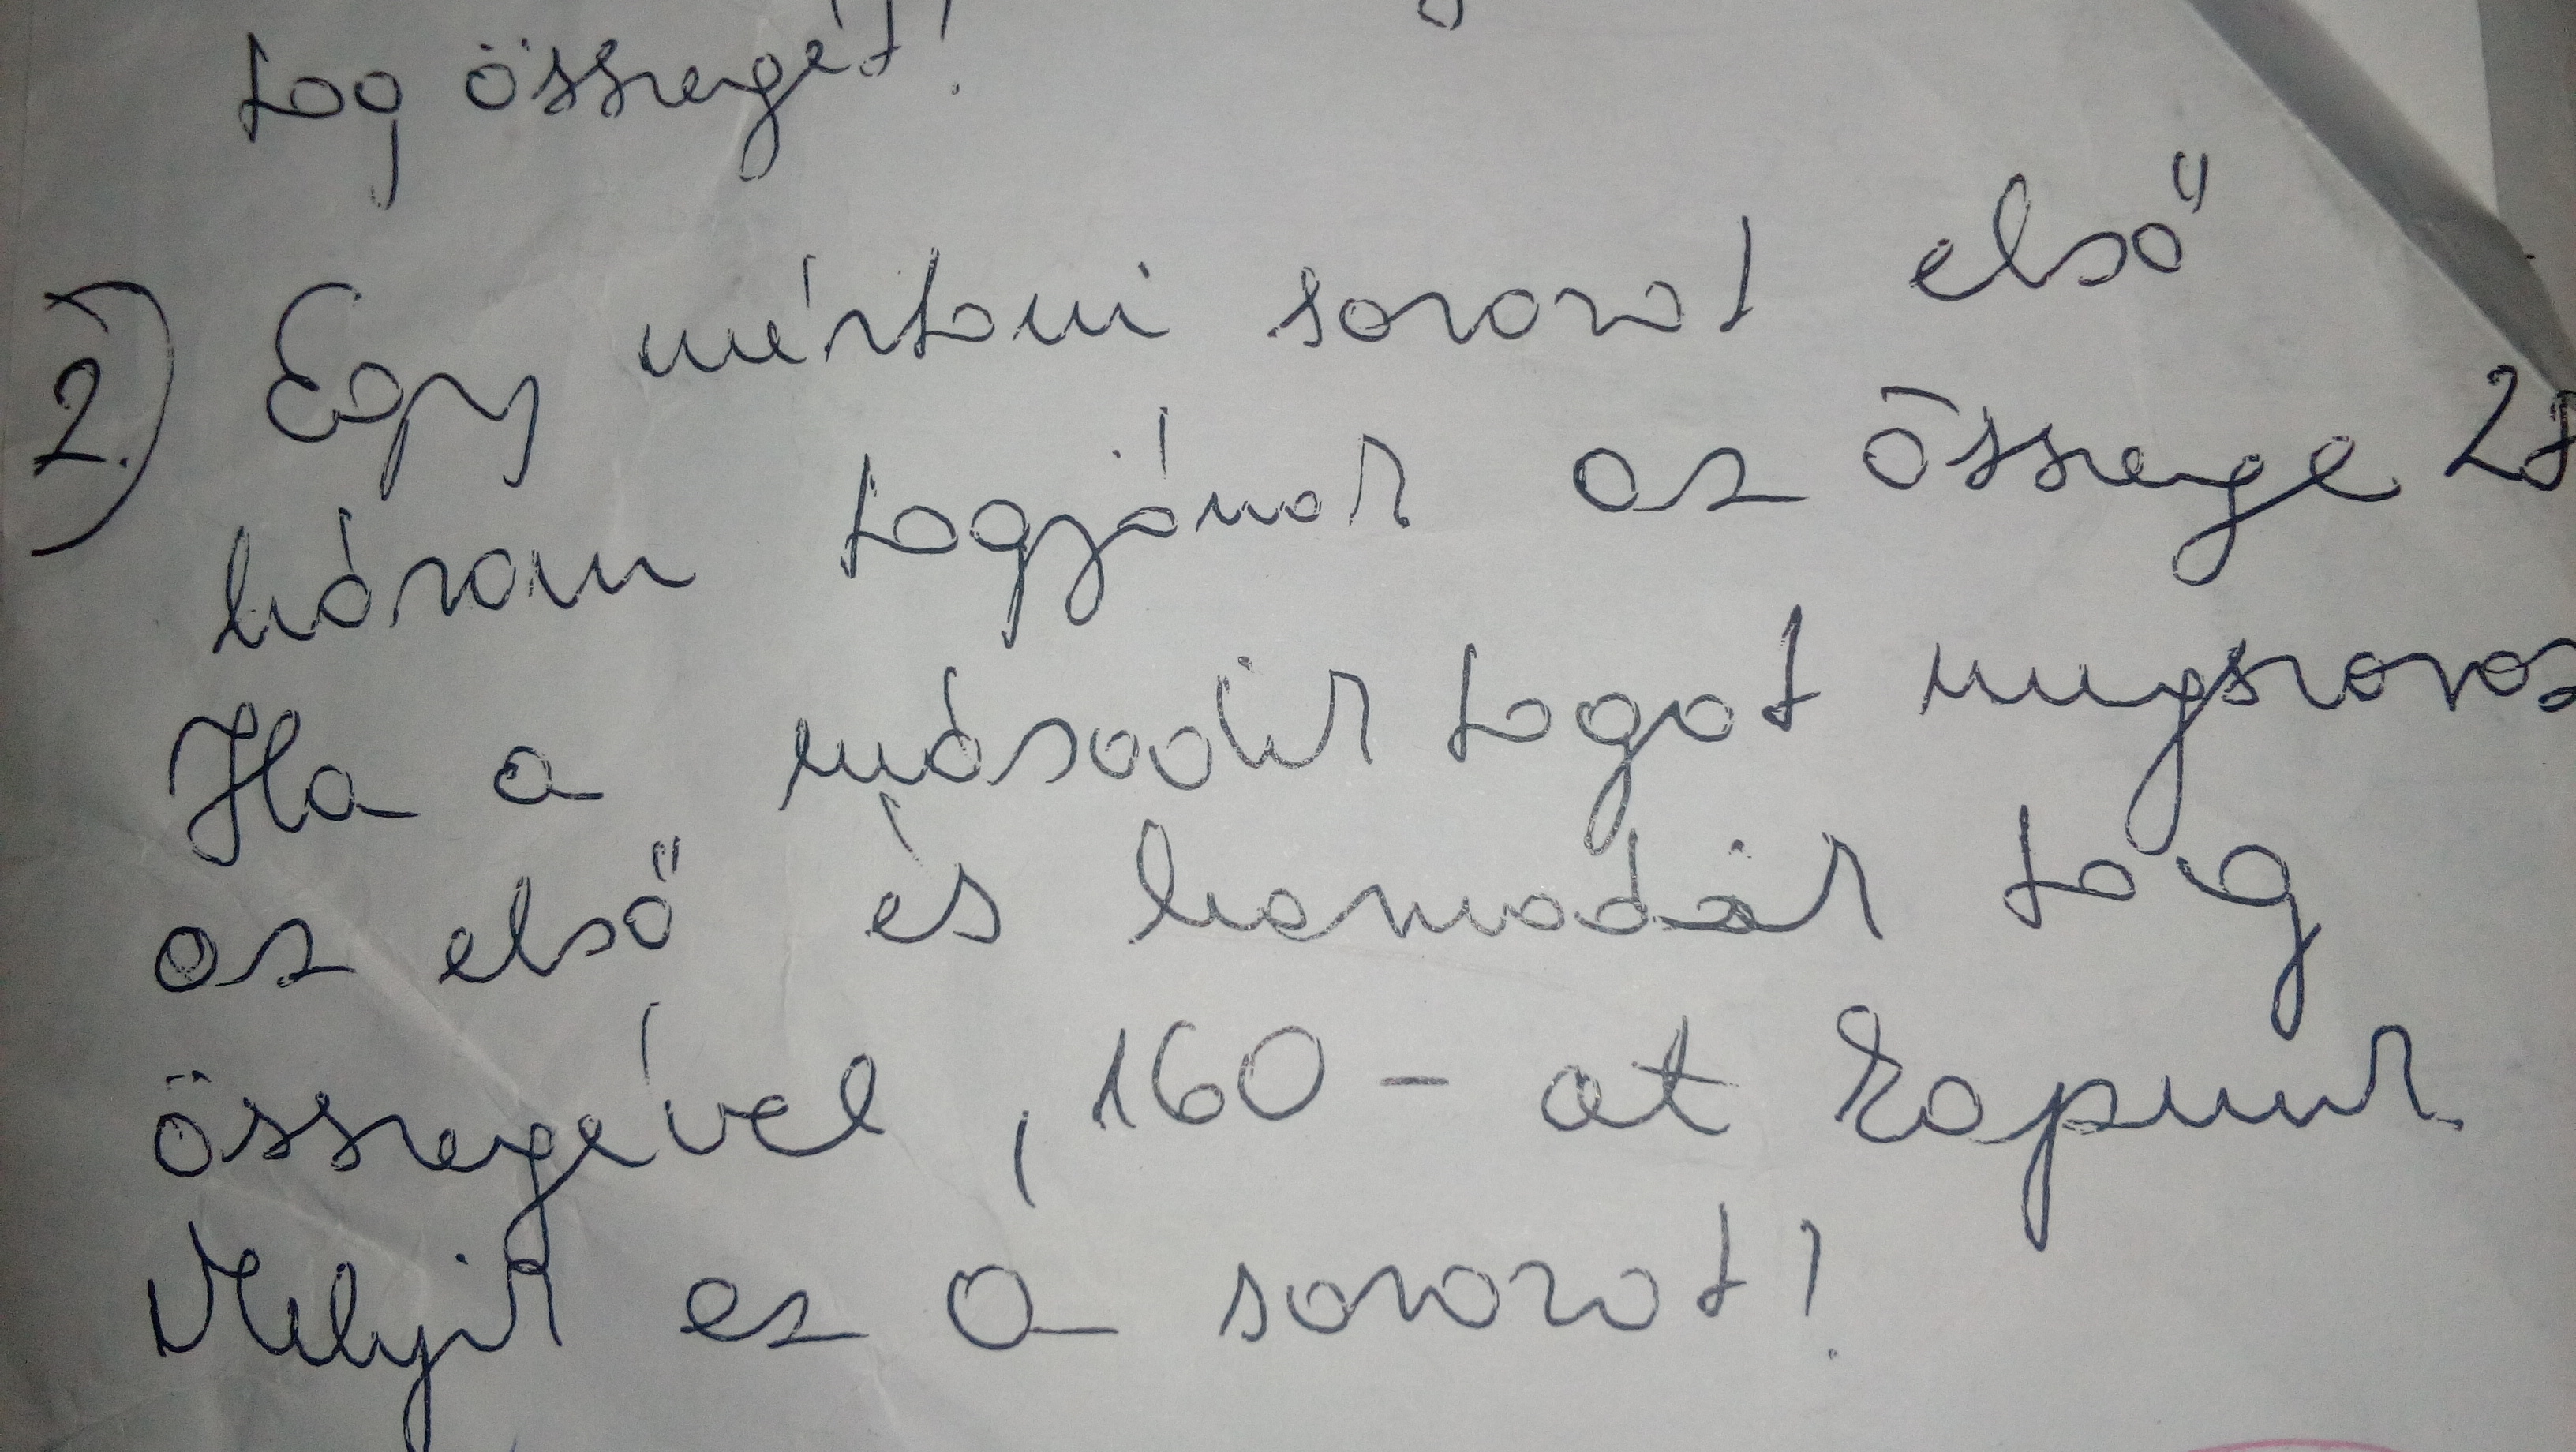 tag összegét!
2.) Egy mértani sorozat első
három tagjának az összege 28
Ha a második tagot megszoroz
az első és harmadik tag
összegével, 160-at kapunk
Melyik ez a sorozat?